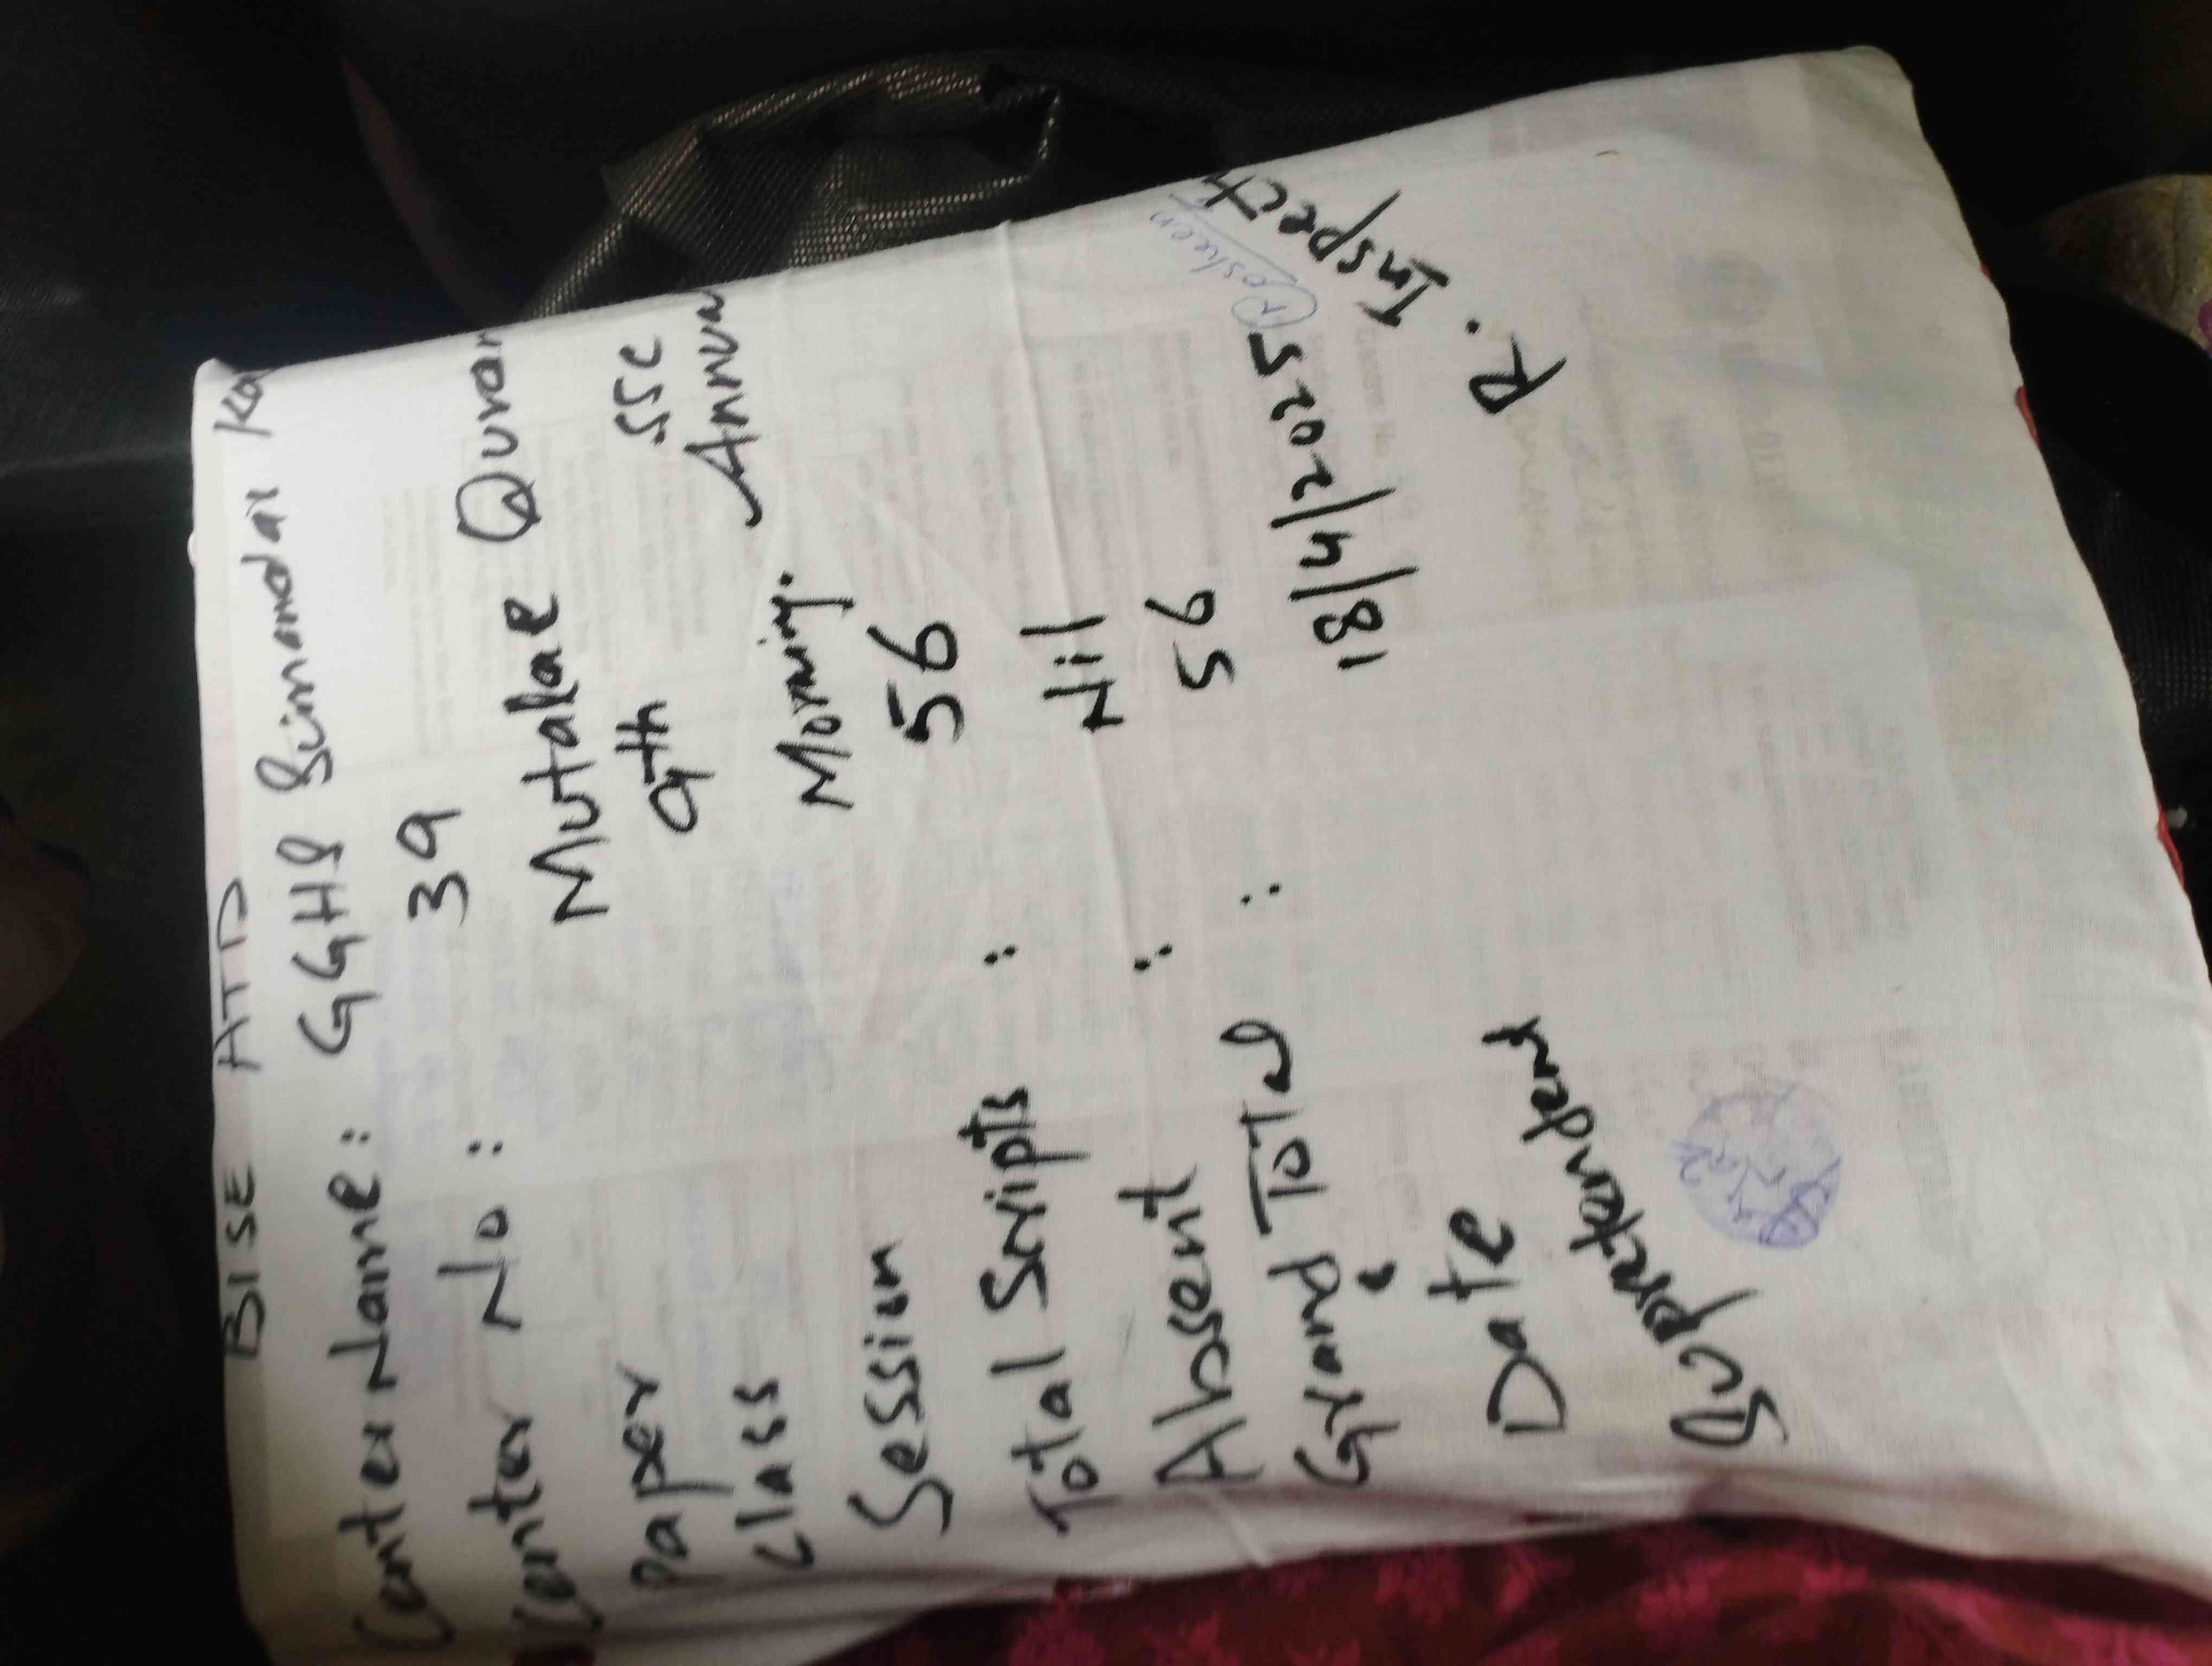 BISE ATD
Center Name: GGHS Simandai
Center No: 39
Paper Mutalae Quran
Class 9th SSC Annua
Session Morning.
Total Scripts : 56
Absent : Nil
Grand Total : 56
Date 18/4/2025
Posheen
Supretendent R. Inspect